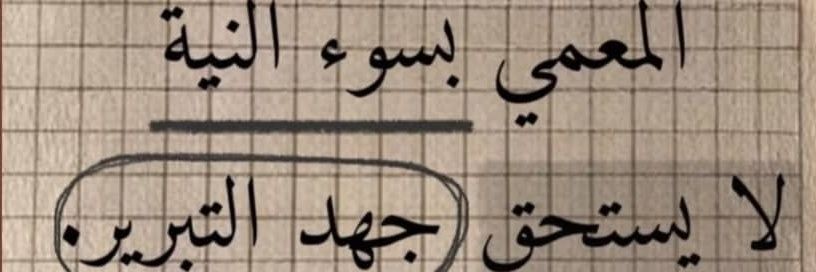 المعمي بسوء النية
لا يستحق جهد التبرير.